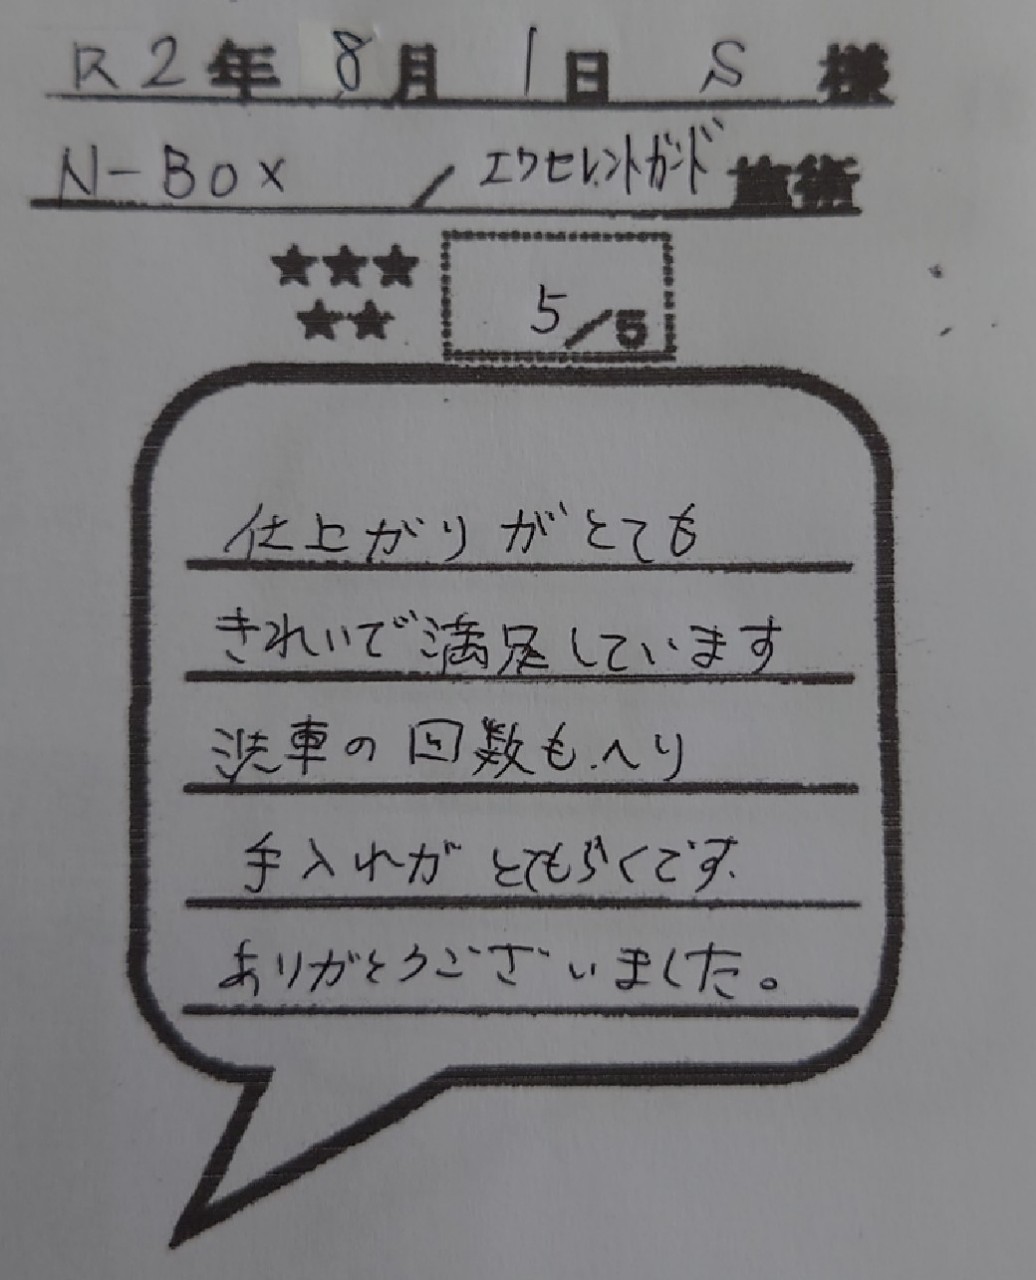 R2年 8月 1日 S 様
N-BOX / エクセレントガード 施術
★★★
★★
5/5
仕上がりがとても
きれいで満足しています
洗車の回数もへり
手入れがとてもらくです.
ありがとうございました。